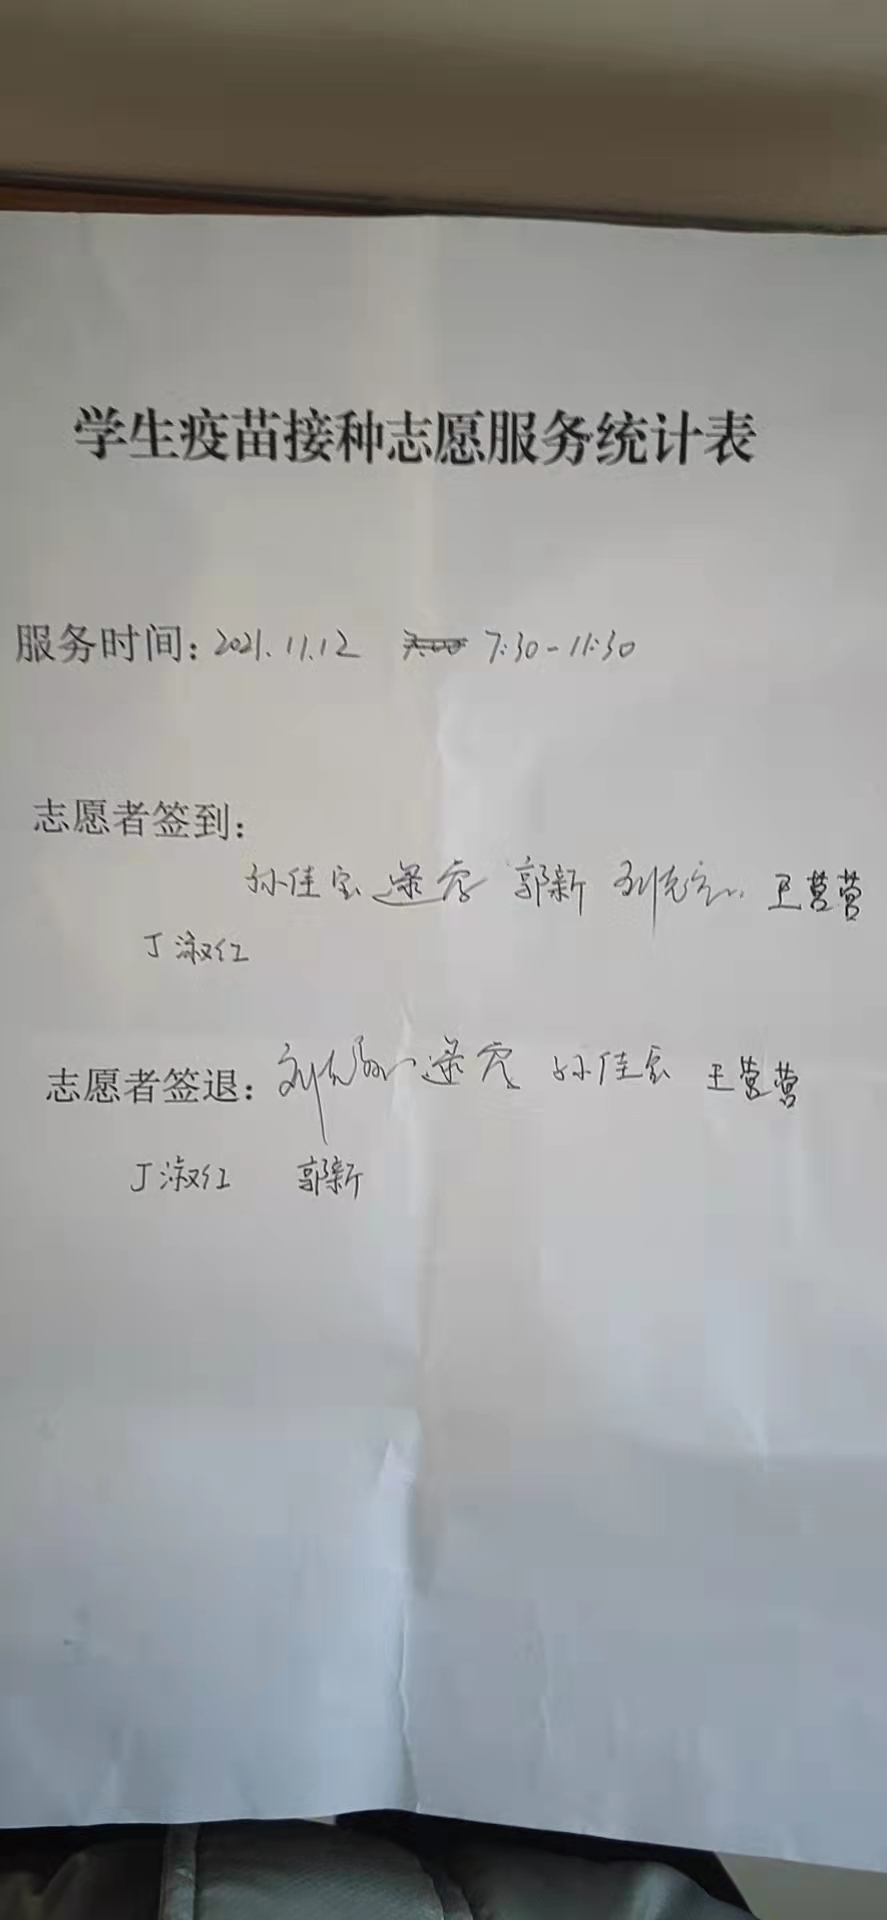 学生疫苗接种志愿服务统计表
服务时间：2021.11.12 7:30-11:30
志愿者签到：
孙佳宝 郭新 王营营
丁淑红
志愿者签退： 孙佳宝 王营营
丁淑红 郭新